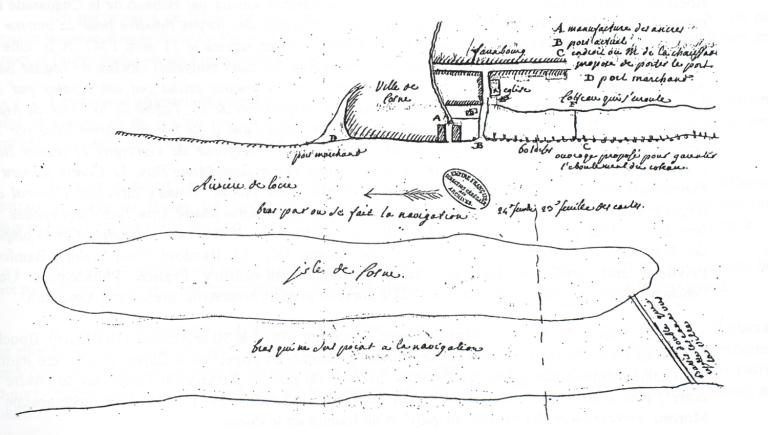 A manufacture des ancres
B port actuel
C endroit ou M de la chaussade
propose de porter le port
D port marchant
faubourg
Ville de
Cosne
eglise
Cotteau qui s'eroule
A
D
B
C
port marchant
ouvrage proposé pour garantir
l'eboulement du coteau.
Riviere de loire
bras par ou se fait la navigation
24e feuille 25e feuille des cartes.
isle de Cosne.
bras qui ne sert point a la navigation